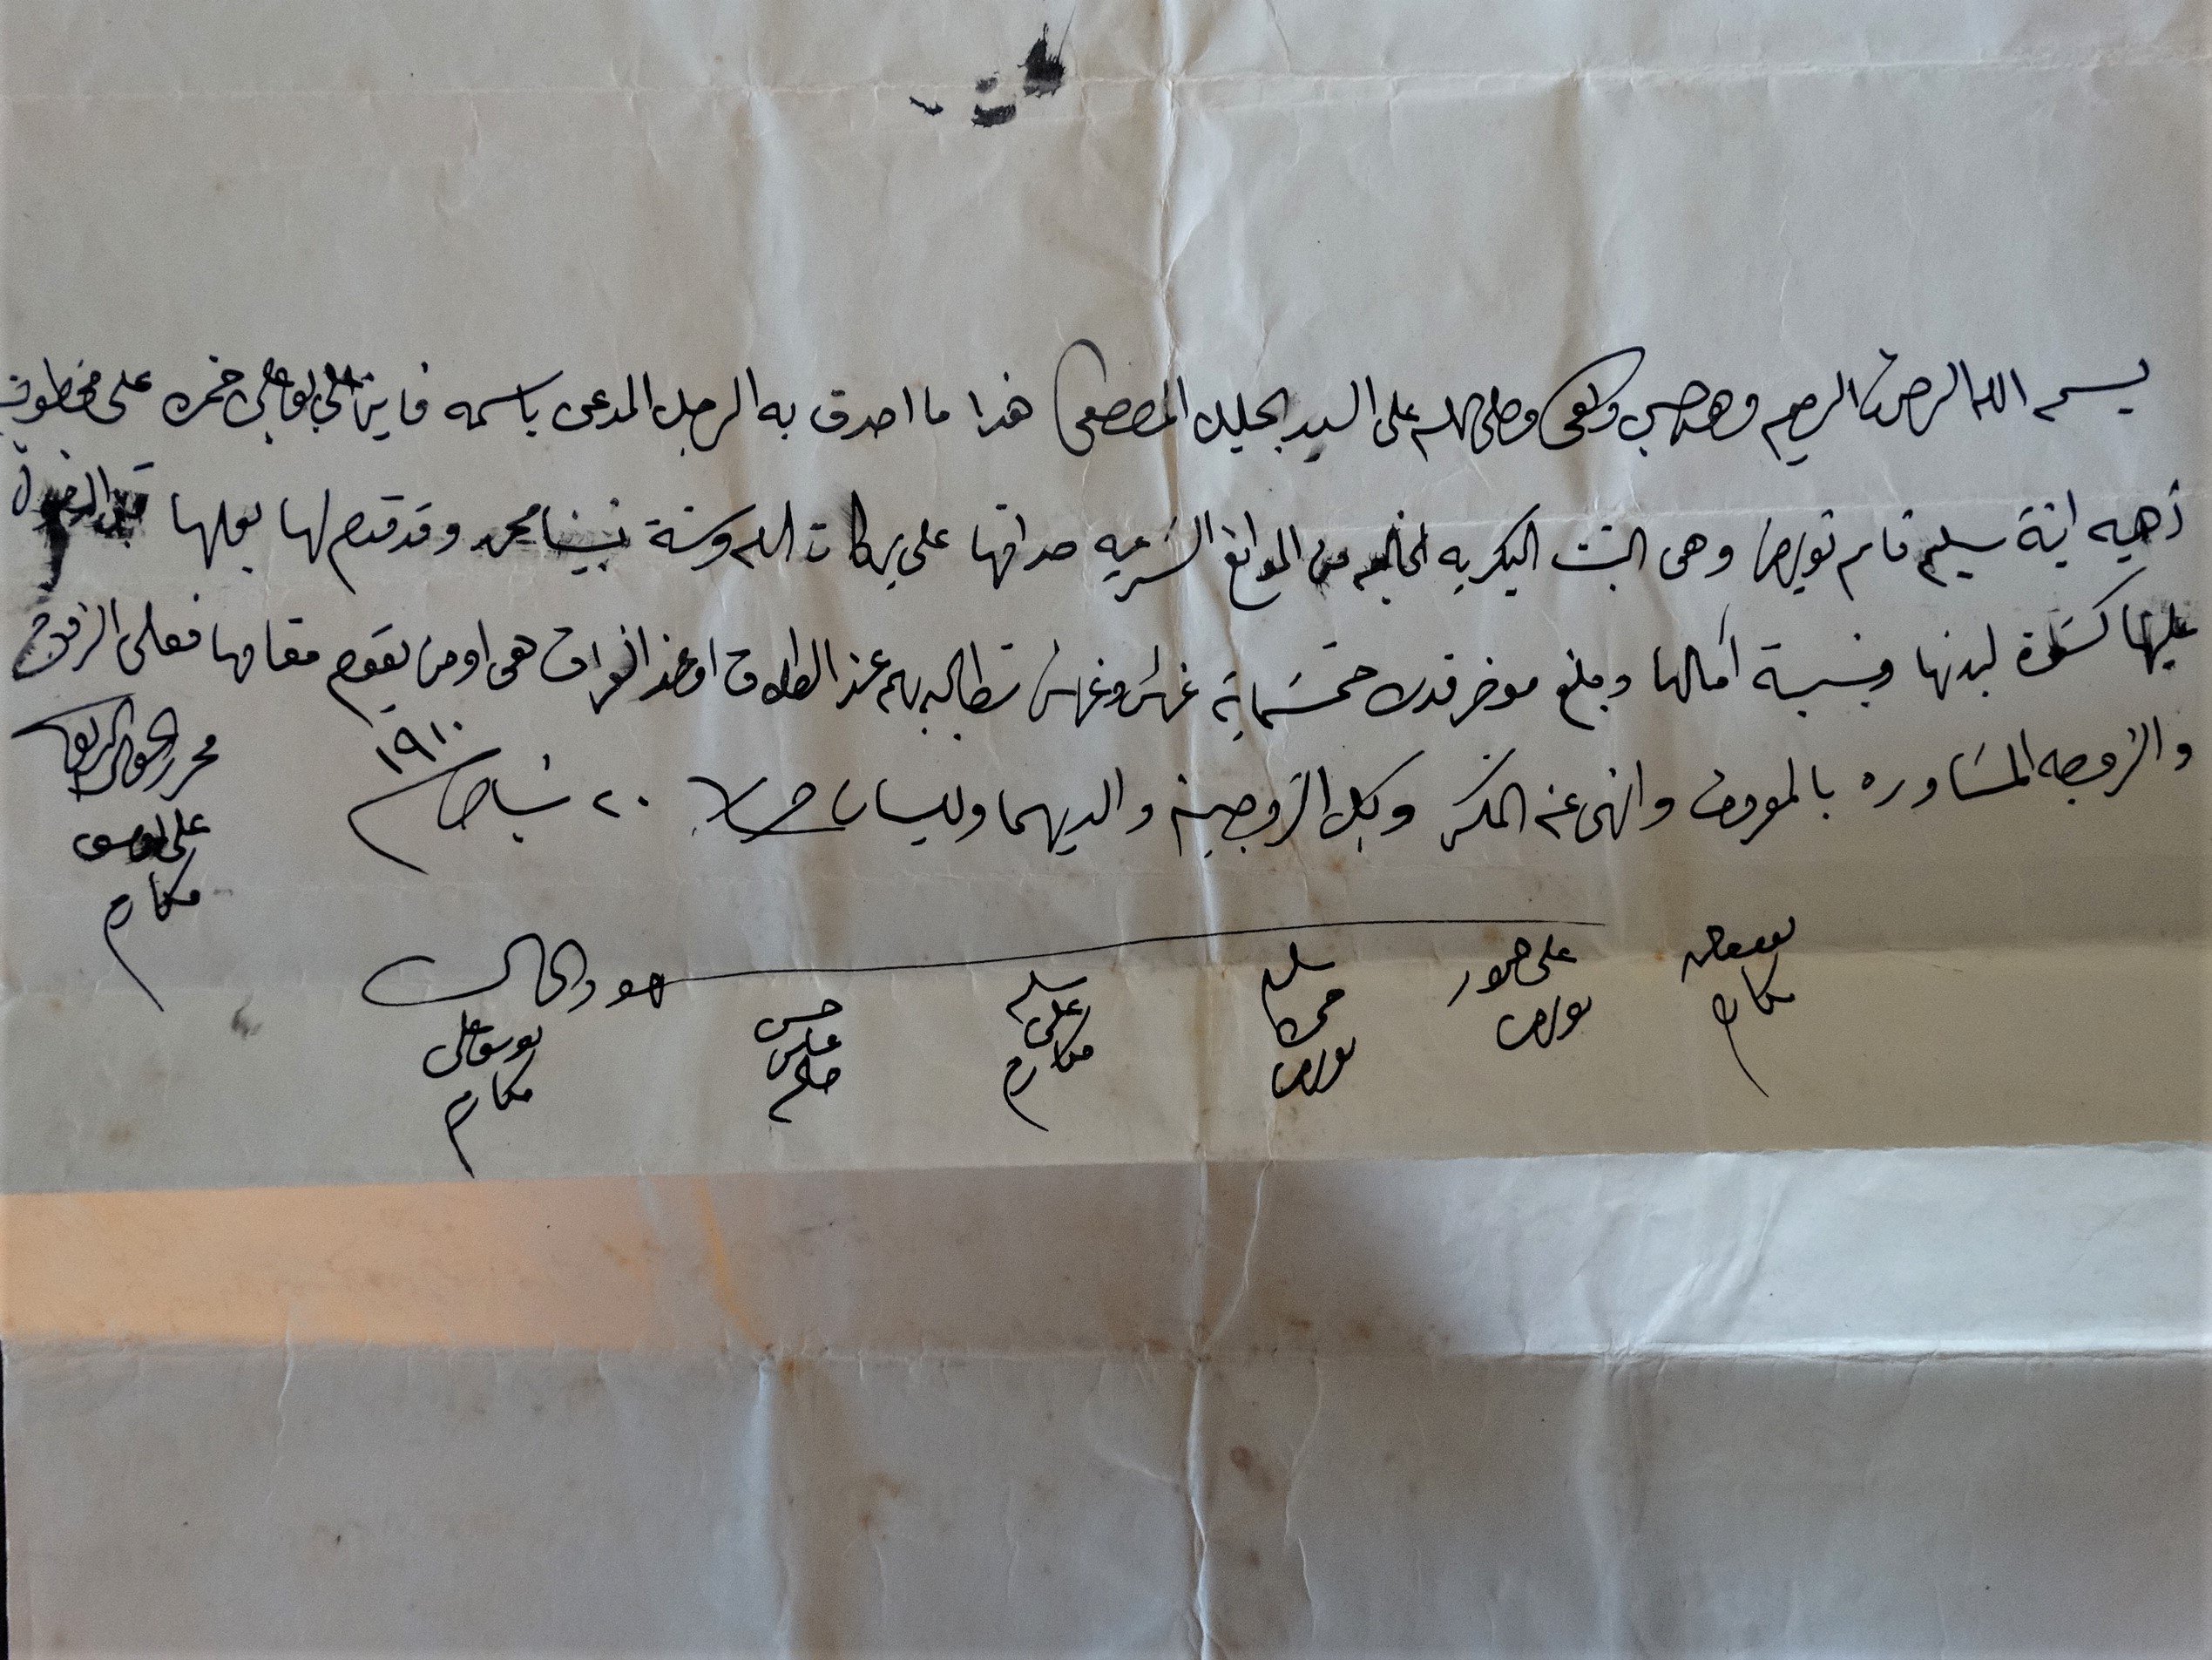 بسم الله الرحمن الرحيم وهو حسبي وكفى وصلى الله على السيد الجليل المصطفى هذا ما اصدق به الرجل المدعى باسمه فايز علي على مخطوبته
زهيه ابنة سليم قاسم وهي البنت البكريه الخاليه من الموانع الشرعيه صداقها على بركات الله وسنة نبينا محمد وقد قدم لها بعلها قبل الدخول
عليها كسوة لبدنها ونسبة امثالها ومبلغ موخر قدره خمسماية غرش وغرش تطالبه بهم عند الطلاق او عند الفراق هي او من يقوم مقامها فعلى الزوج
والزوجه المشاوره بالمعروف وانهى عنه المنكر وكل الزوجين والديهما ٢٠ شباط ١٩١٠
محرر
علي يوسف
مكارم
شهود الحال
مكارم
علي
سليم
سليم
علي
مكارم
حسن
يوسف علي
مكارم